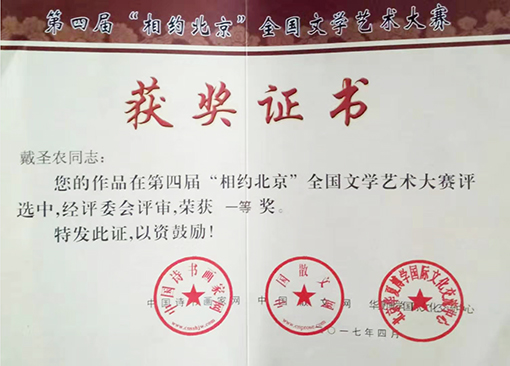 第四届“相约北京”全国文学艺术大赛
获奖证书
戴圣农同志：
您的作品在第四届“相约北京”全国文学艺术大赛评
选中，经评委会评审，荣获 一等 奖。
特发此证，以资鼓励！
中国诗书画家网
中国散文网
二〇一七年四月